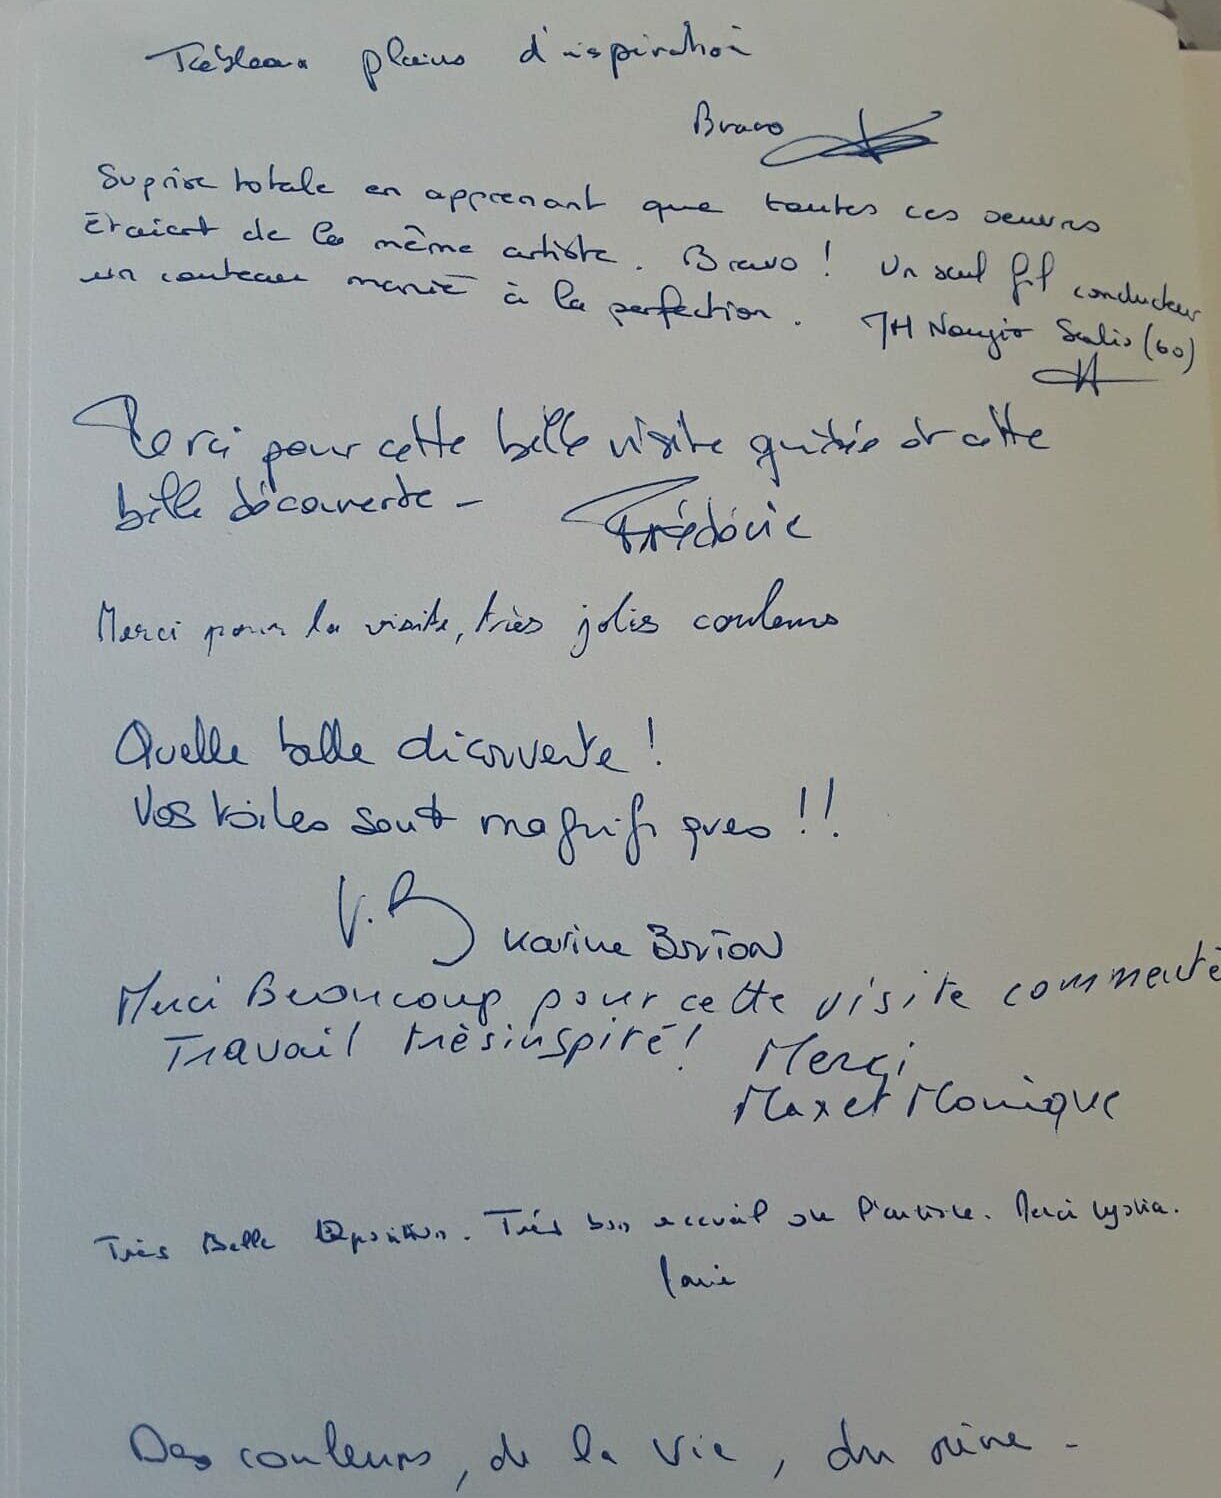 Tableaux pleins d'inspiration
Bravo
Suprise totale en apprenant que toutes ces oeuvres
étaient de la même artiste. Bravo ! Un seul fil conducteur
un couteau manié à la perfection. JH (60)
Merci pour cette belle visite guidée et cette
belle découverte -
Frédéric
Merci pour la visite, très jolis couleurs
Quelle belle découverte !
Vos toiles sont magnifiques !!
V.B Karine
Merci Beaucoup pour cette visite commenté
Travail très inspiré ! Merci
Max et Monique
Très Belle Exposition. Très bon accueil de l'artiste. Merci
Des couleurs, de la vie, du